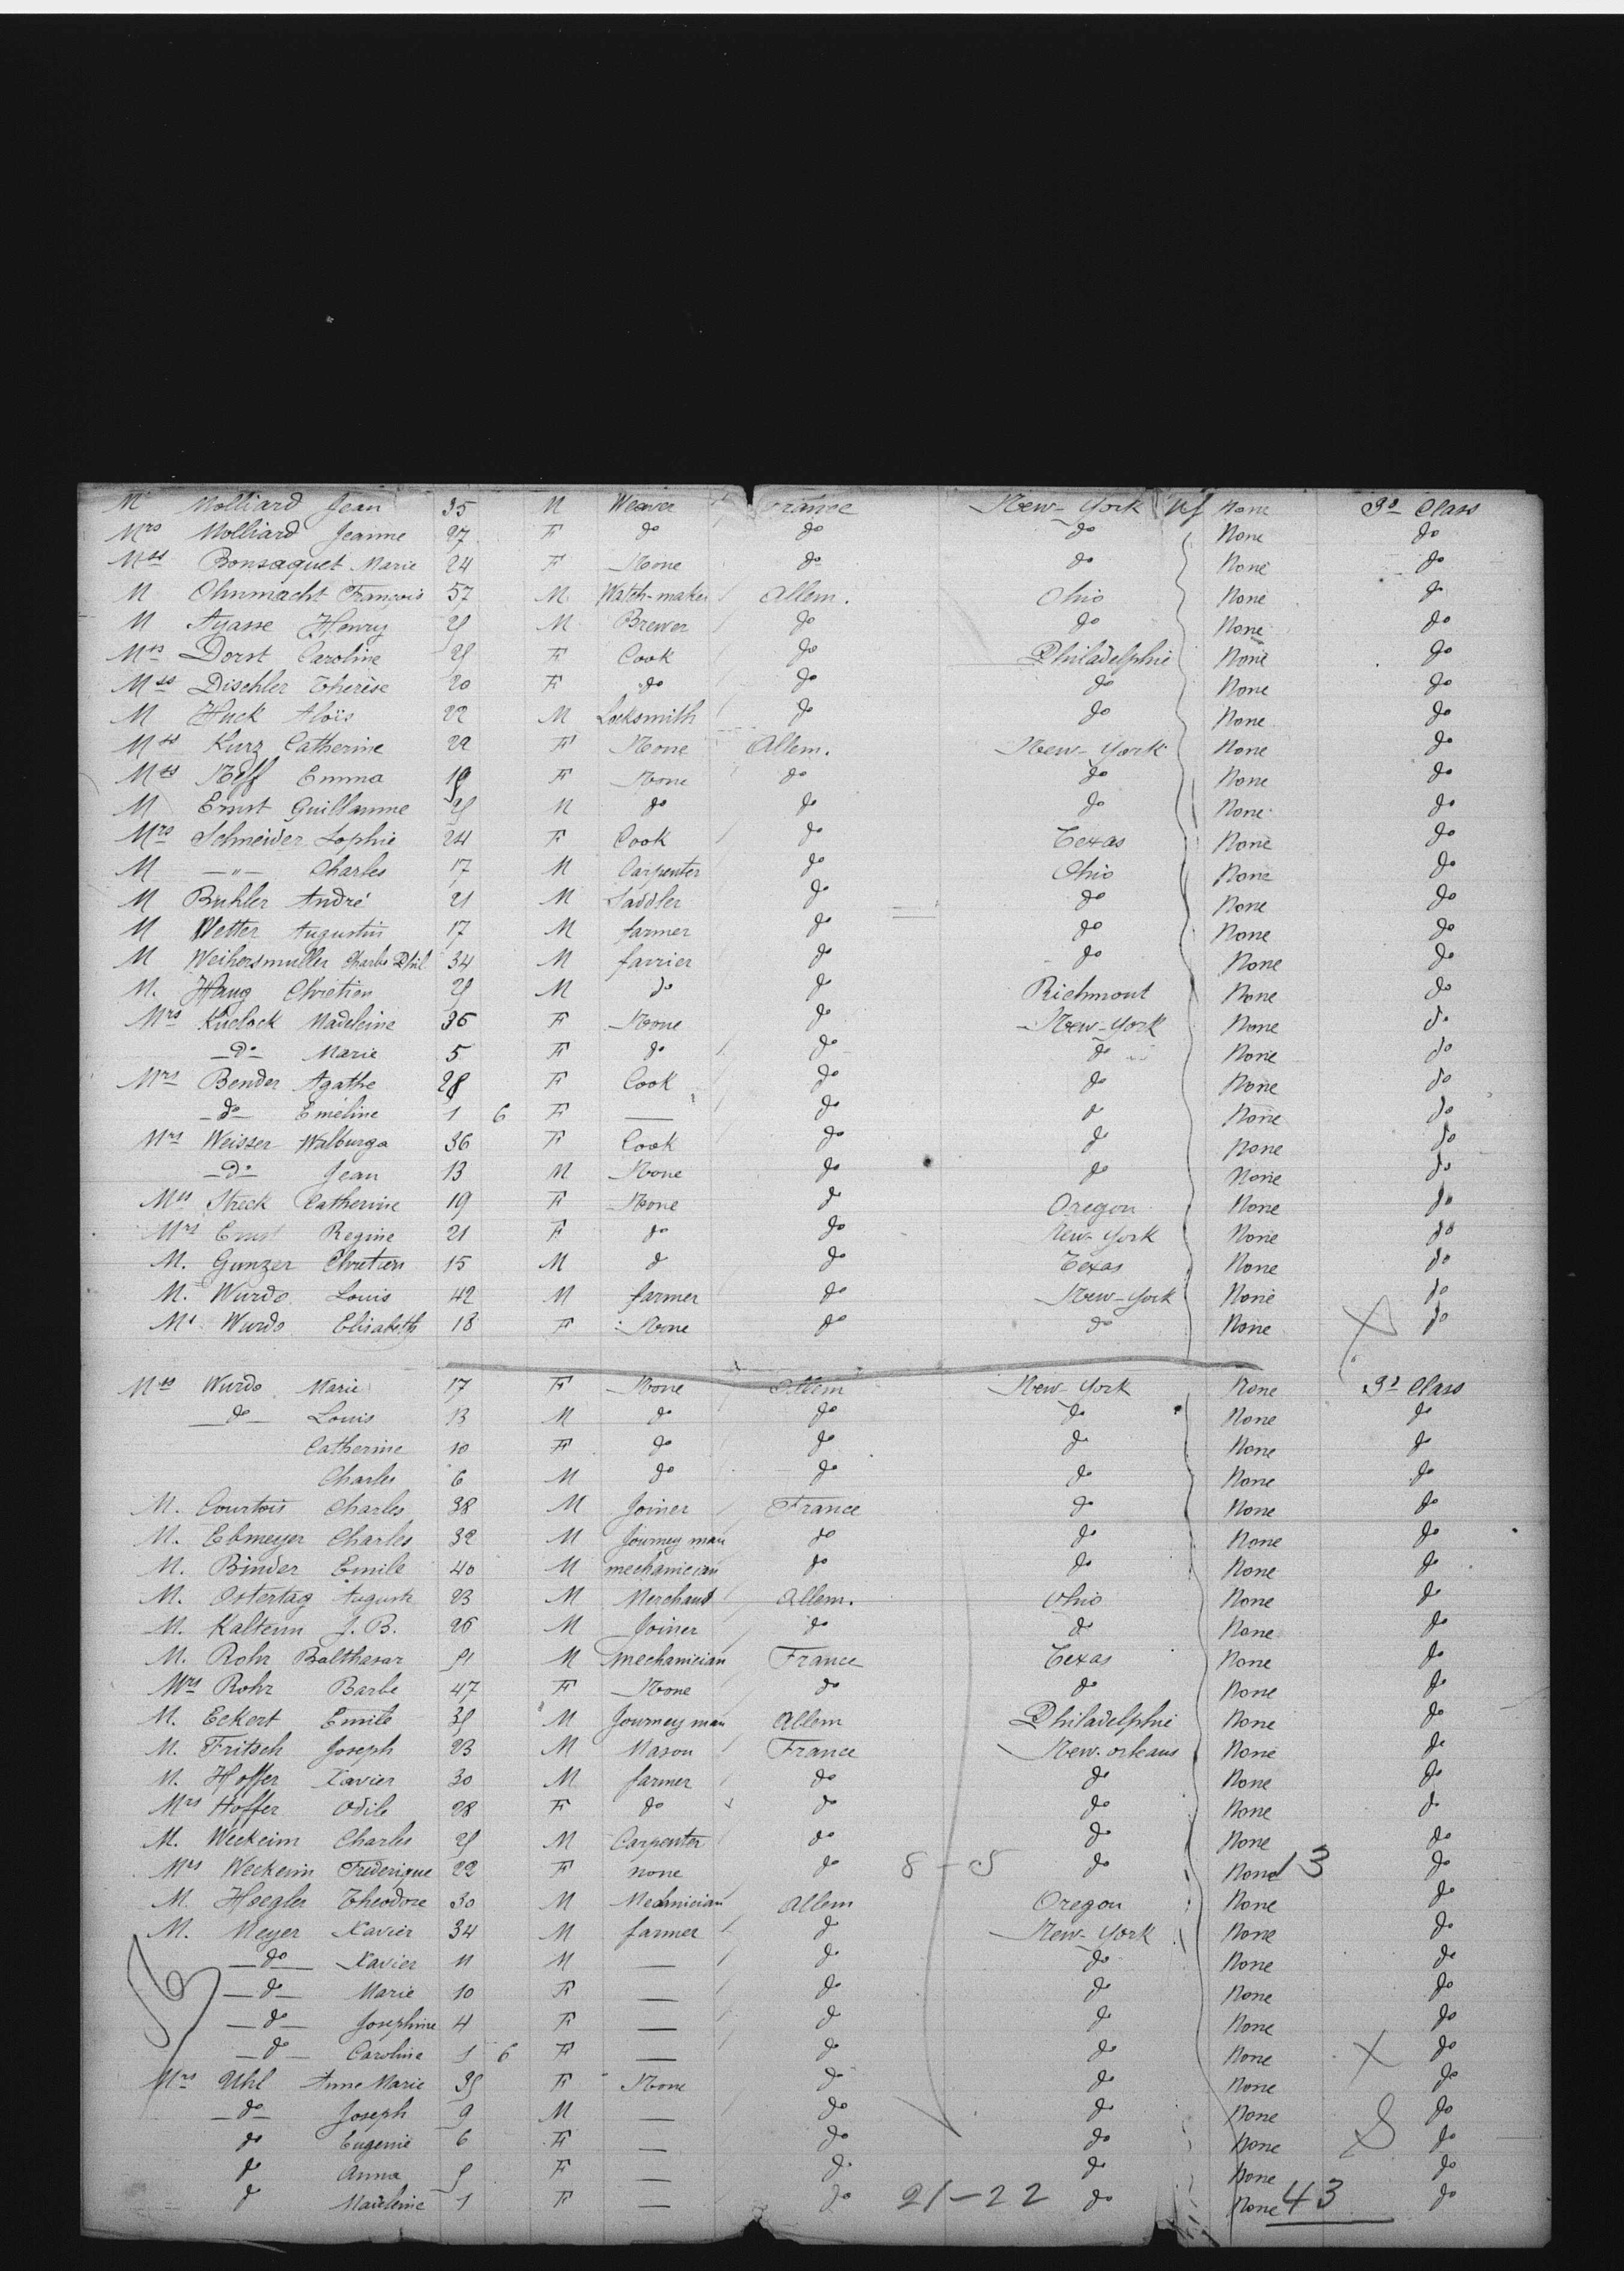 M Molliard Jean 35 M Weaver France New-York None 3d Class
Mrs Molliard Jeanne 27 F do do do None do
Mss Bonsaquet Marie 24 F None do do None do
M Ohnmacht François 57 M Watch-maker Allem. Ohio None do
M Ayasse Henry 25 M Brewer do do None do
Mss Dorst Caroline 25 F Cook do Philadelphie None do
Mss Dischler Therèse 20 F do do do None do
M Huck Aloïs 22 M Locksmith do do None do
Mss Kurz Catherine 22 F None Allem. New-York None do
Mss Neff Emma 19 F None do do None do
M Ernst Guillaume 25 M do do do None do
Mrs Schneider Sophie 24 F Cook do Texas None do
M —"— Charles 17 M Carpenter do Ohio None do
M Buhler André 21 M Saddler do do None do
M Wetter Augustin 17 M farmer do do None do
M Weihersmuller Charles Phil 34 M farrier do do None do
M. Haug Chretien 25 M do do Richmont None do
Mrs Kuelock Madeleine 36 F None do New-York None do
—do— Marie 5 F do do do None do
Mrs Bender Agathe 28 F Cook do do None do
—do— Emeline 1 6 F — do do None do
Mrs Weisser Walburga 36 F Cook do do None do
—do— Jean 13 M None do do None do
Mss Streck Catherine 19 F None do Oregon None do
Mrs Ernst Regine 21 F do do New-York None do
M. Gunzer Chretien 15 M do do Texas None do
M. Wurdo Louis 42 M farmer do New-York None do
Ms Wurdo Elisabeth 18 F None do do None do
Mss Wurdo Marie 17 F None Allem New-York None 3d Class
—do— Louis 13 M do do do None do
Catherine 10 F do do do None do
Charles 6 M do do do None do
M. Courtois Charles 38 M Joiner France do None do
M. Ebmeyer Charles 32 M Journey man do do None do
M. Binder Emile 40 M mechanician do do None do
M. Ostertag Auguste 23 M Merchand Allem. Ohio None do
M. Kaltenn J. B. 26 M Joiner do do None do
M. Rohr Balthasar 51 M mechanician France Texas None do
Mrs Rohr Barbe 47 F None do do None do
M. Eckert Emile 35 M Journey man Allem Philadelphie None do
M. Fritsch Joseph 23 M Mason France New-orleans None do
M. Hoffer Xavier 30 M farmer do do None do
Mrs Hoffer Odile 28 F do do do None do
M. Weckeim Charles 25 M Carpenter do do None do
Mrs Weckeim Frederique 22 F none do 8-5 do None 13 do
M. Hoegler Theodore 30 M Mechnician Allem Oregon None do
M. Meyer Xavier 34 M farmer do New-York None do
—do— Xavier 11 M — do do None do
—do— Marie 10 F — do do None do
—do— Josephine 4 F — do do None do
—do— Caroline 1 6 F — do do None do
Mrs Uhl Anne Marie 35 F None do do None do
—do— Joseph 9 M — do do None do
do Eugenie 6 F — do do None do
do Anna 5 F — do do None do
do Madeleine 1 F — do 21-22 do None 43 do